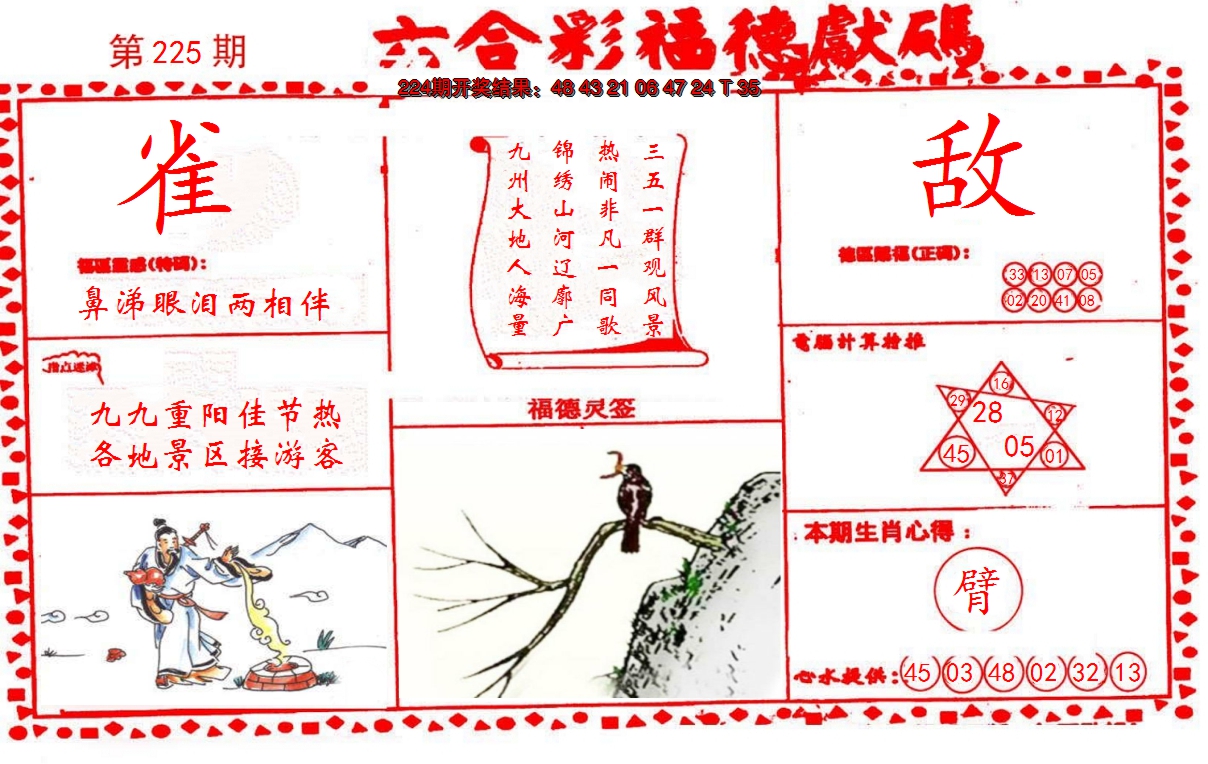 第225期
六合彩福德獻碼
224期开奖结果：48 43 21 06 47 24 T 35
雀
福區靈感(特碼)：
鼻涕眼泪两相伴
指点迷津
九九重阳佳节热
各地景区接游客
三五一群观风景
热闹非凡一同歌
锦绣山河辽廓广
九州大地人海量
福德灵签
敌
德區賜福(正碼)：
33 13 07 05
02 20 41 08
電腦計算抢推
16
29 28 12
45 05 01
37
本期生肖心得：
臂
心水提供：45 03 48 02 32 13